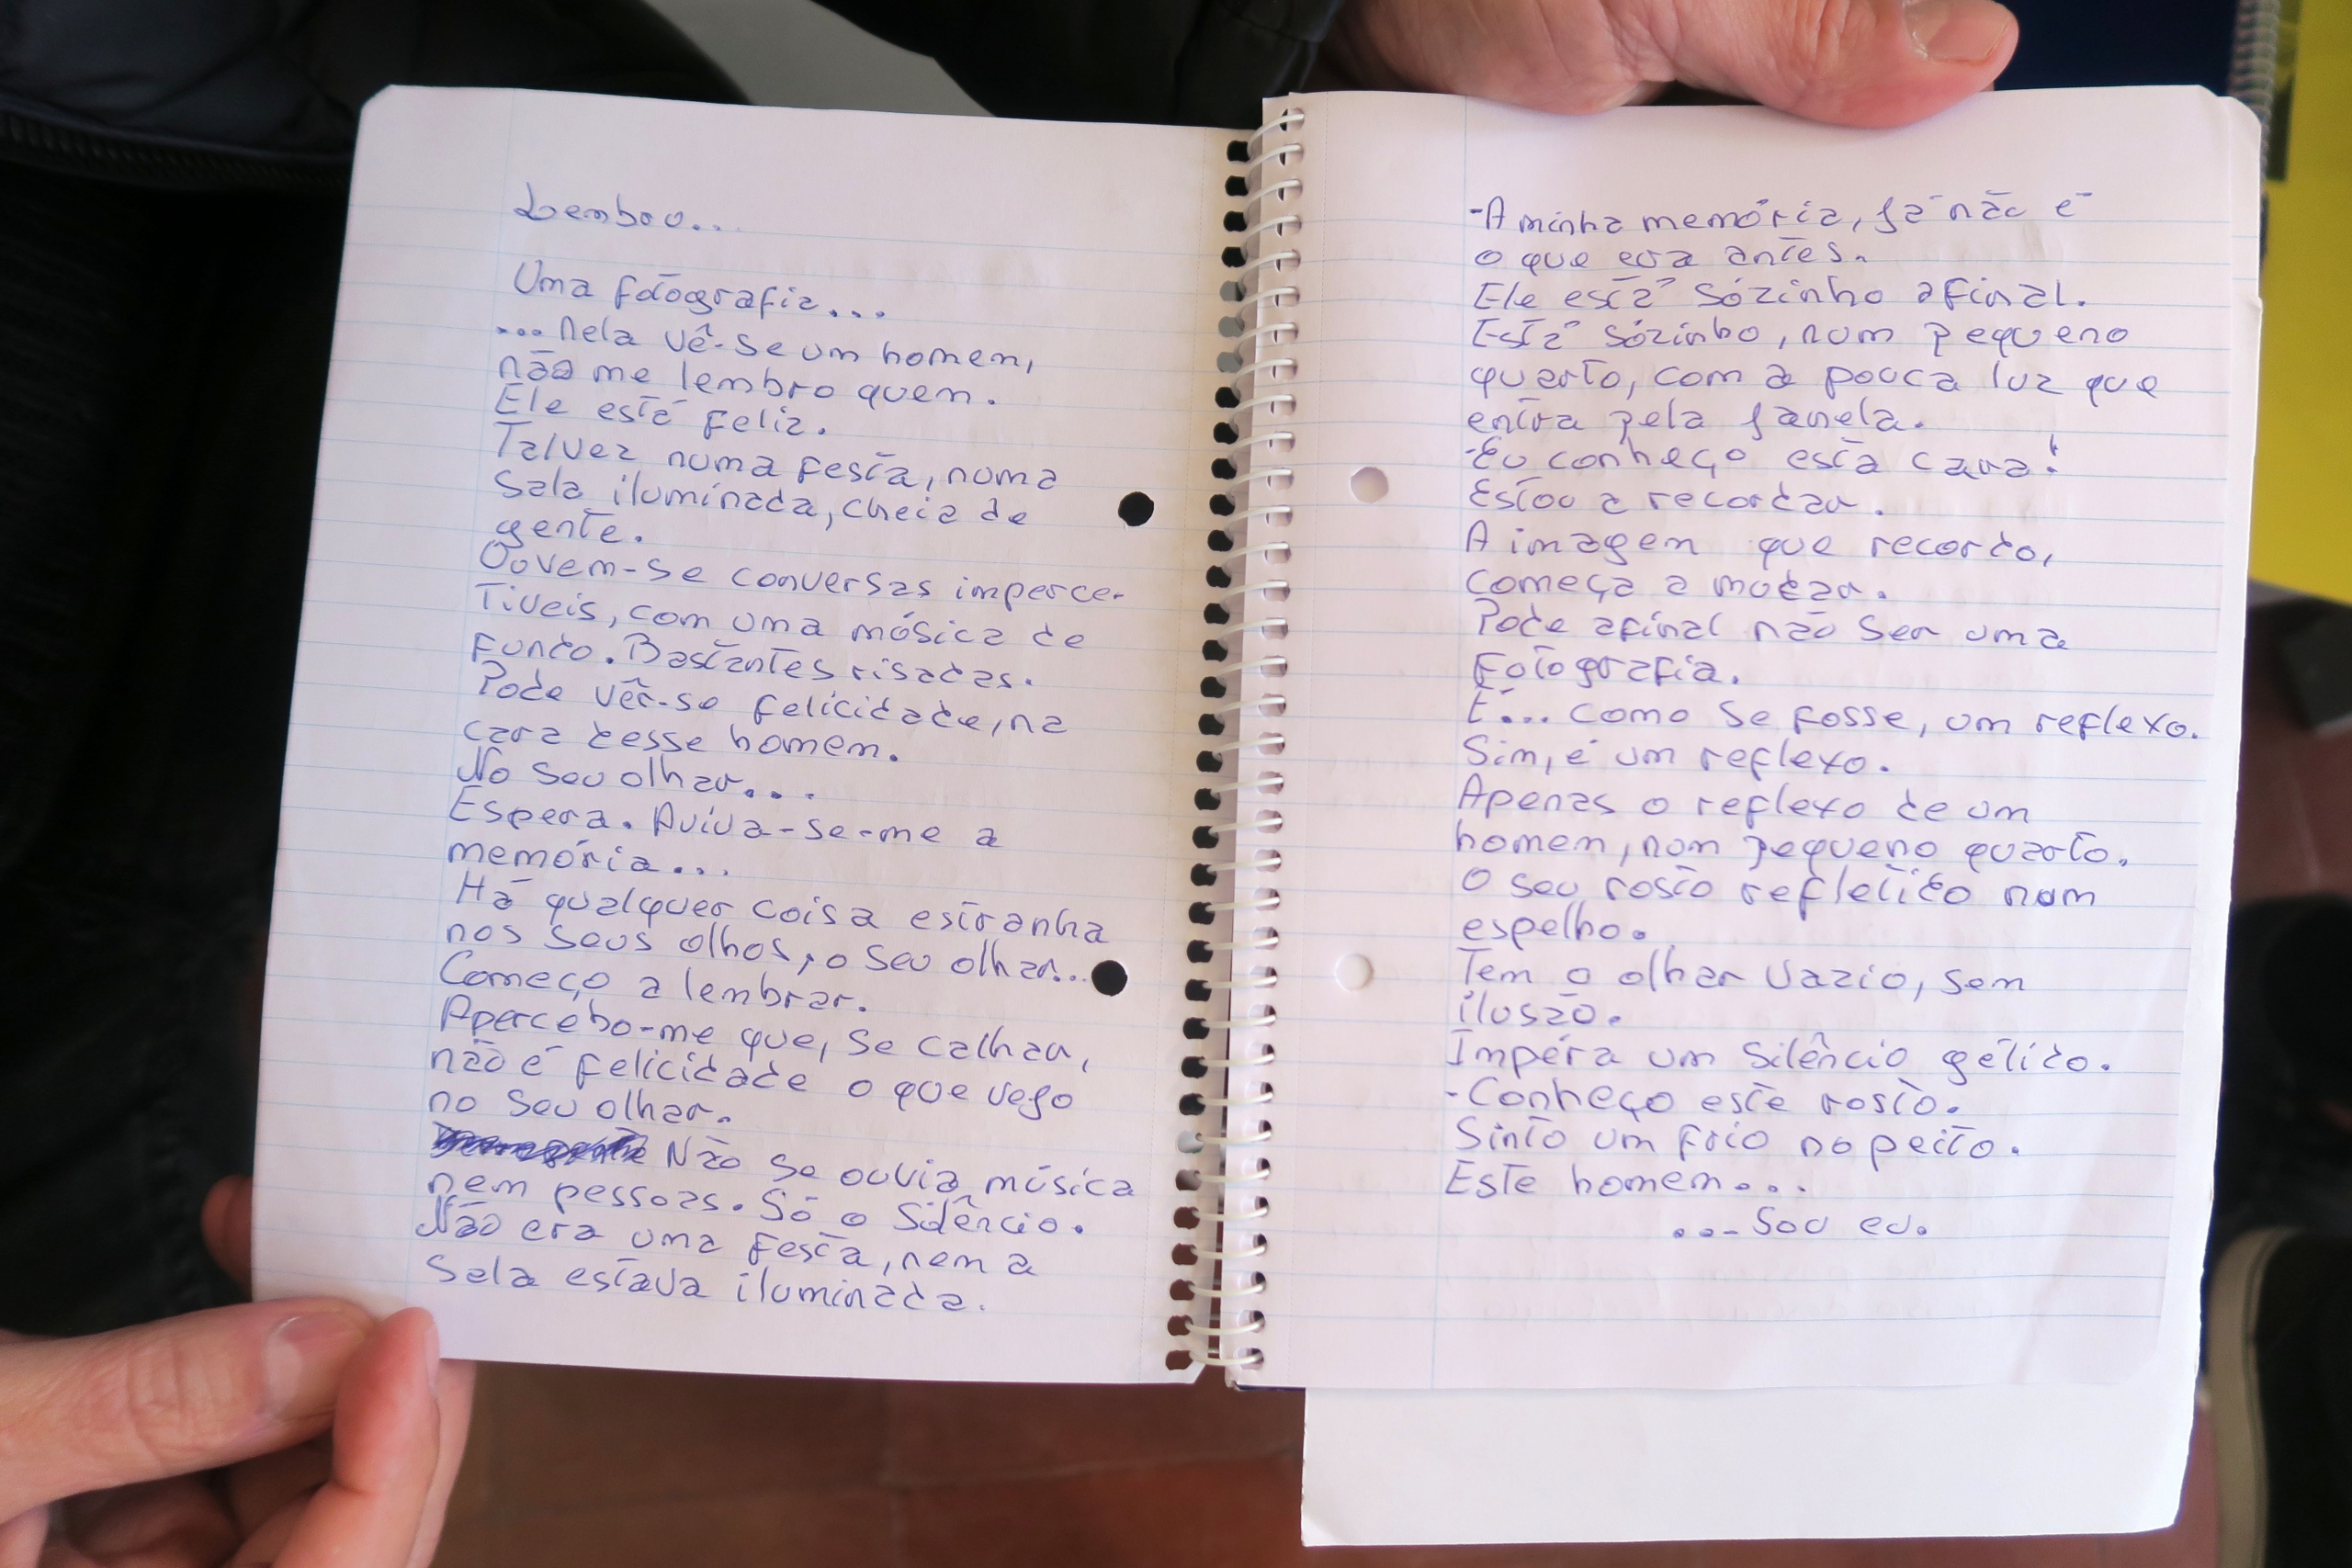 Lembro...
Uma fotografia...
...nela vê-se um homem,
não me lembro quem.
Ele está feliz.
Talvez numa festa, numa
sala iluminada, cheia de
gente.
Ouvem-se conversas imperce-
tiveis, com uma música de
fundo. Bastantes risadas.
Pode vêr-se felicidade, na
cara desse homem.
No seu olhar...
Espera. Aviva-se-me a
memória...
Há qualquer coisa estranha
nos seus olhos, o seu olhar...
Começo a lembrar.
Apercebo-me que, se calhar,
não é felicidade o que vejo
no seu olhar.
Não se ouvia música
nem pessoas. Só o silêncio.
Não era uma festa, nem a
sala estava iluminada.
-A minha memória, já não é
o que era antes.
Ele está sózinho afinal.
Está sózinho, num pequeno
quarto, com a pouca luz que
entra pela janela.
-Eu conheço esta cara!
Estou a recordar.
A imagem que recordo,
começa a mudar.
Pode afinal não ser uma
fotografia.
É... como se fosse, um reflexo.
Sim, é um reflexo.
Apenas o reflexo de um
homem, num pequeno quarto.
O seu rosto refletido num
espelho.
Tem o olhar vazio, sem
ilusão.
Impéra um silêncio gélido.
-Conheço este rosto.
Sinto um frio no peito.
Este homem...
...sou eu.